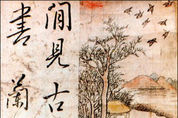 見古
書蘭